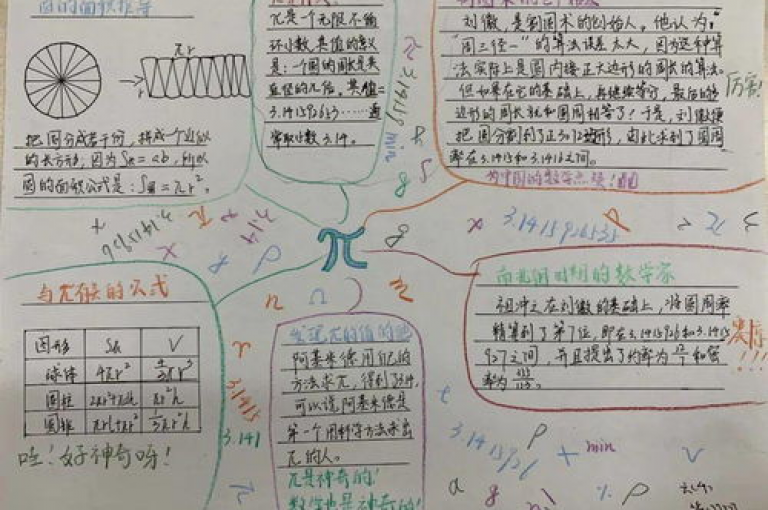 圆的面积推导
πr
r
把圆分成若干份，拼成个近似
的长方形，因为S长=ab，所以
圆的面积公式是：S圆=πr²。
π是一个无限不循
环小数，其值的意义
是：一个圆的周长是其
直径的几倍，其值=
3.141592653……通
常取小数3.14。
刘徽，是割圆术的创始人，他认为，
"周三径一"的算法误差太大，因为这种算
法实际上是圆内接正六边形的周长的算法。
但如果在它的基础上，再继续等分，最后的
边形的周长就和圆周相等了！于是，刘徽便
把圆分割到了正3072边形，由此求到了圆周
率在3.1415和3.1416之间。
厉害！
为中国的数学点赞！
π
3.1415926535
与π有关的公式
图形 S表 V
球体 4πr² 4/3πr³
圆柱 2πr²+πdh πr²h
圆锥 πrl+πr² 1/3πr²h
哇！好神奇呀！
3.1415
3.141
发现π的值的
阿基米德用自己的
方法求π，得到了3.14，
可以说阿基米德是
第一个用科学方法求出
π的人。
π是神奇的！
数学也是神奇的！
南北朝时期的数学家
祖冲之在刘徽的基础上，将圆周率
精算到了第7位，即在3.1415926和3.1415
927之间，并且提出了约率为22/7和密
率为355/113。
!!!
3.1415926
min
V